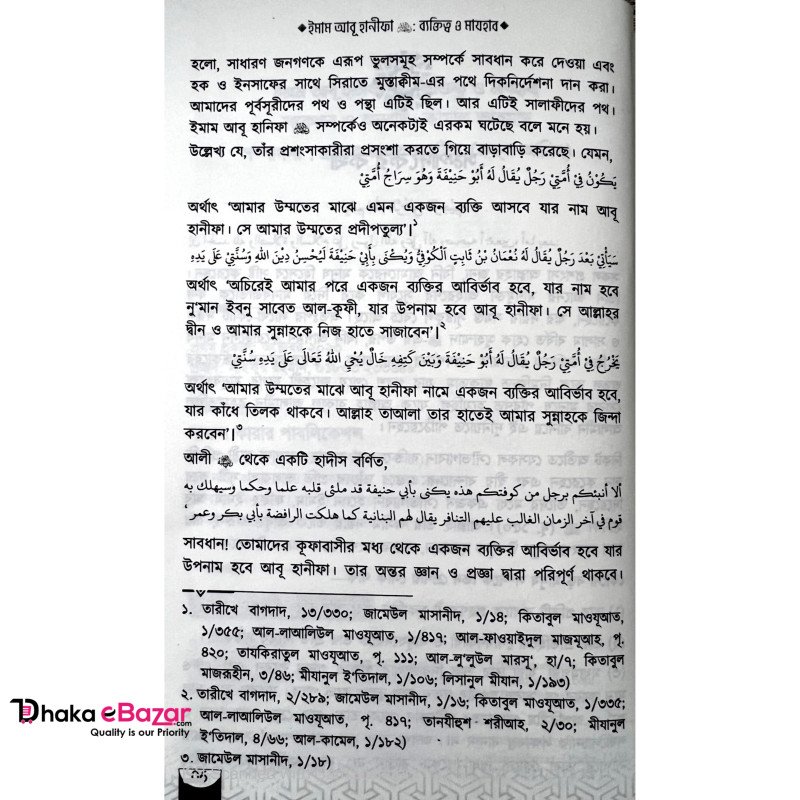 ◆ইমাম আবূ হানীফা ﷫: ব্যক্তিত্ব ও মাযহাব◆
হলো, সাধারণ জনগণকে এরূপ ভুলসমূহ সম্পর্কে সাবধান করে দেওয়া এবং
হক ও ইনসাফের সাথে সিরাতে মুস্তাকীম-এর পথে দিকনির্দেশনা দান করা।
আমাদের পূর্বসূরীদের পথ ও পন্থা এটিই ছিল। আর এটিই সালাফীদের পথ।
ইমাম আবূ হানিফা ﷫ সম্পর্কেও অনেকটাই এরকম ঘটেছে বলে মনে হয়।
উল্লেখ্য যে, তাঁর প্রশংসাকারীরা প্রসংশা করতে গিয়ে বাড়াবাড়ি করেছে। যেমন,
يَكُوْنُ فِيْ أُمَّتِيْ رَجُلٌ يُقَالُ لَهُ أَبُوْ حَنِيْفَةَ وَهُوَ سِرَاجُ أُمَّتِيْ
অর্থাৎ ‘আমার উম্মতের মাঝে এমন একজন ব্যক্তি আসবে যার নাম আবূ
হানীফা। সে আমার উম্মতের প্রদীপতুল্য’।১
سَيَأْتِيْ بَعْدِ رَجُلٌ يُقَالُ لَهُ نُعْمَانُ بْنُ ثَابِتٍ اَلْكُوْفِيُّ وَيُكْنَى بِأَبِيْ حَنِيْفَةَ لَيُحْسِنُ دِيْنَ اللهِ وَسُنَّتِيْ عَلَى يَدِهِ
অর্থাৎ ‘অচিরেই আমার পরে একজন ব্যক্তির আবির্ভাব হবে, যার নাম হবে
নু’মান ইবনু সাবেত আল-কূফী, যার উপনাম হবে আবূ হানীফা। সে আল্লাহর
দ্বীন ও আমার সুন্নাহকে নিজ হাতে সাজাবেন’।২
يَخْرُجُ فِيْ أُمَّتِيْ رَجُلٌ يُقَالُ لَهُ أَبُوْ حَنِيْفَةَ وَبَيْنَ كَتِفِهِ خَالٌ يُحْيِ اللهُ تَعَالَى عَلَى يَدِهِ سُنَّتِيْ
অর্থাৎ ‘আমার উম্মতের মাঝে আবূ হানীফা নামে একজন ব্যক্তির আবির্ভাব হবে,
যার কাঁধে তিলক থাকবে। আল্লাহ তাআলা তার হাতেই আমার সুন্নাহকে জিন্দা
করবেন’।৩
আলী থেকে একটি হাদীস বর্ণিত,
ألا أنبئكم برجل من كوفتكم هذه يكنى بأبي حنيفة قد ملئ قلبه علما وحكما وسيهلك به
قوم في آخر الزمان الغالب عليهم التنافر يقال لهم البنانية كما هلكت الرافضة بأبي بكر وعمر'
সাবধান! তোমাদের কূফাবাসীর মধ্য থেকে একজন ব্যক্তির আবির্ভাব হবে যার
উপনাম হবে আবূ হানীফা। তার অন্তর জ্ঞান ও প্রজ্ঞা দ্বারা পরিপূর্ণ থাকবে।
১. তারীখে বাগদাদ, ১৩/৩৩০; জামেউল মাসানীদ, ১/১৪; কিতাবুল মাওযূআত,
১/৩৫৫; আল-লাআলিউল মাওযূআত, ১/৪১৭; আল-ফাওয়াইদুল মাজমূআহ, পৃ.
৪২০; তাযকিরাতুল মাওযূআত, পৃ. ১১১; আল-লু’লুউল মারসূ’, হা/৭; কিতাবুল
মাজরূহীন, ৩/৪৬; মীযানুল ই’তিদাল, ১/১০৬; লিসানুল মীযান, ১/১৯৩)
২. তারীখে বাগদাদ, ২/২৮৯; জামেউল মাসানীদ, ১/১৬; কিতাবুল মাওযূআত, ১/৩৩৫;
আল-লাআলিউল মাওযূআত, পৃ. ৪১৭; তানযীহুশ শরীআহ, ২/৩০; মীযানুল
ই’তিদাল, ৪/৬৬; আল-কামেল, ১/১৮২)
৩. জামেউল মাসানীদ, ১/১৮)
Dhaka eBazar.com
Quality is our Priority